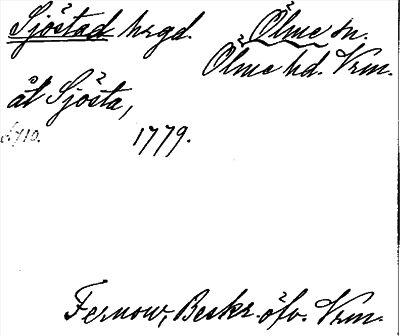 Sjöstad hrgd. Ölme sn.
Ölme hd. Vrm.
åt Sjösta,
1779.
Fernow, Beskr. öfv. Vrm.